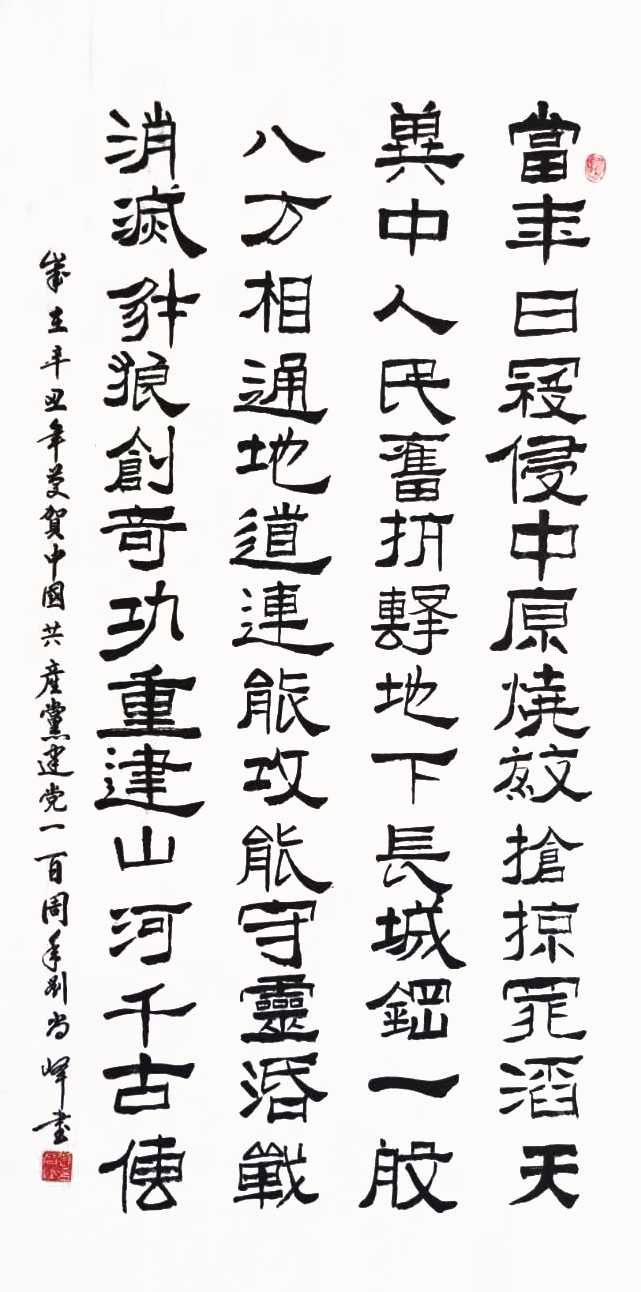 當年日寇侵中原燒殺搶掠罪滔天
冀中人民奮抗爭地下長城鋼一般
八方相通地道連能攻能守靈活戰
消滅豺狼創奇功重建山河千古傳
歲在辛丑年慶賀中國共産黨建党一百周年劉尚峰書